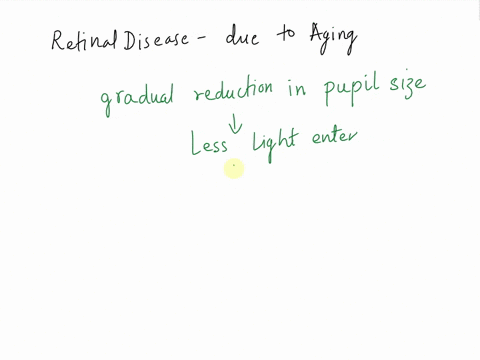 Retinal Disease - due to Aging
gradual reduction in pupil size
Less light enter